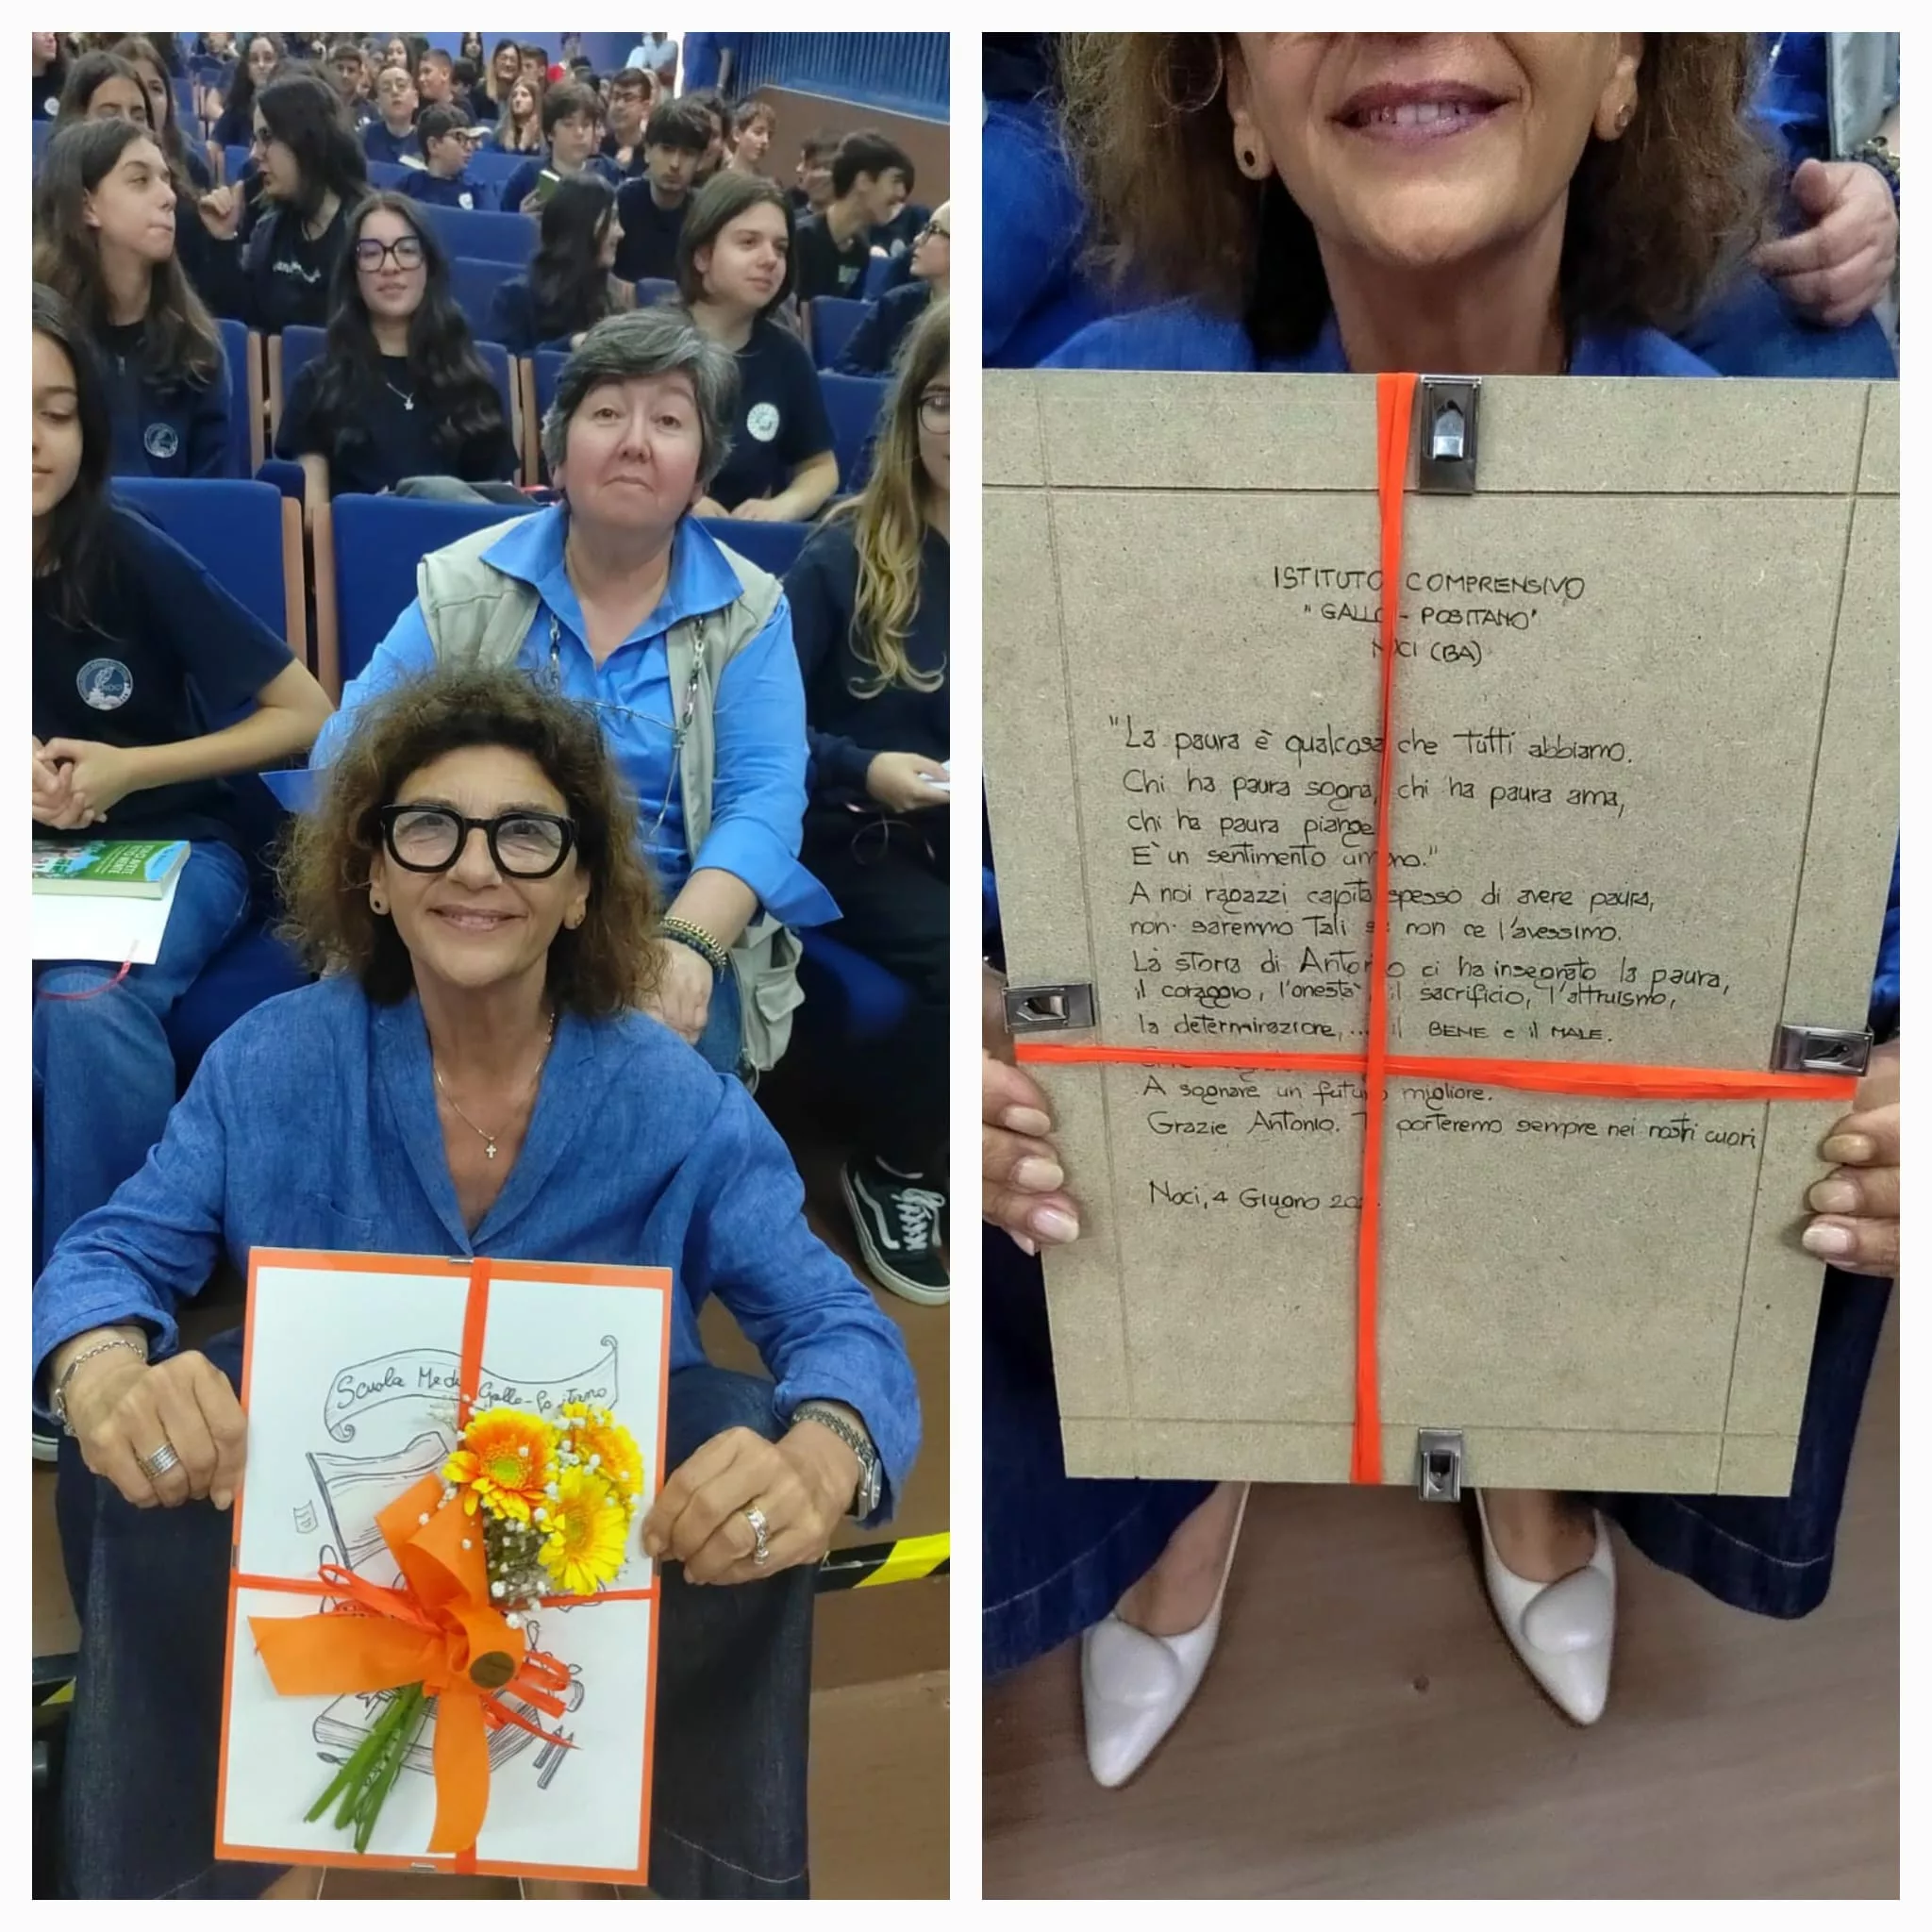 Scuola Gallo-
ISTITUTO COMPRENSIVO
"GALLO - POSITANO"
NOCI (BA)
"La paura è qualcosa che tutti abbiamo.
Chi ha paura sogna, chi ha paura ama,
chi ha paura piange
E' un sentimento umano."
A noi ragazzi capita spesso di avere paura,
non saremmo tali se non ce l'avessimo.
La storia di Antonio ci ha insegnato la paura,
il coraggio, l'onestà, il sacrificio, l'altruismo,
la determinazione, ... il BENE e il MALE.
A sognare un futuro migliore.
Grazie Antonio. Ti porteremo sempre nei nostri cuori
Noci, 4 Giugno